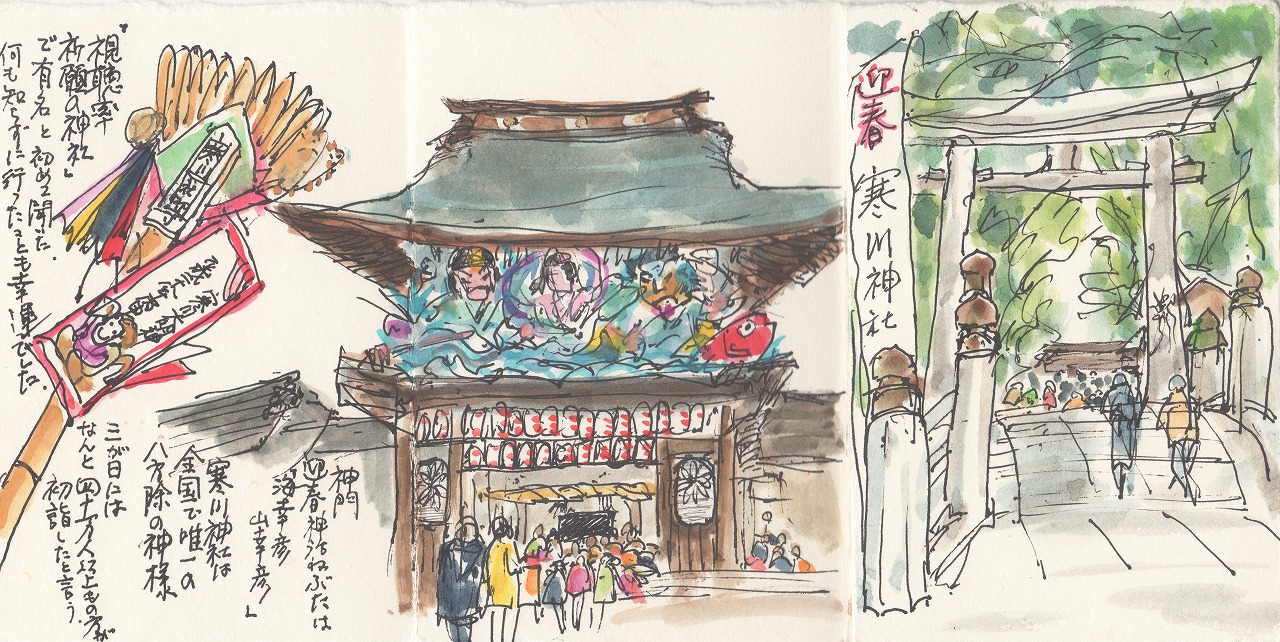 迎春 寒川神社
神門
迎春神話ねぶたは
海幸彦
山幸彦」
寒川神社は
全国で唯一の
八方除の神様
三が日には
なんと四十万人以上もの方が
初詣したと言う.
"視聴率
祈願の神社」
で有名と初めて聞いた.
何も知らずに行ったことも幸運でした.